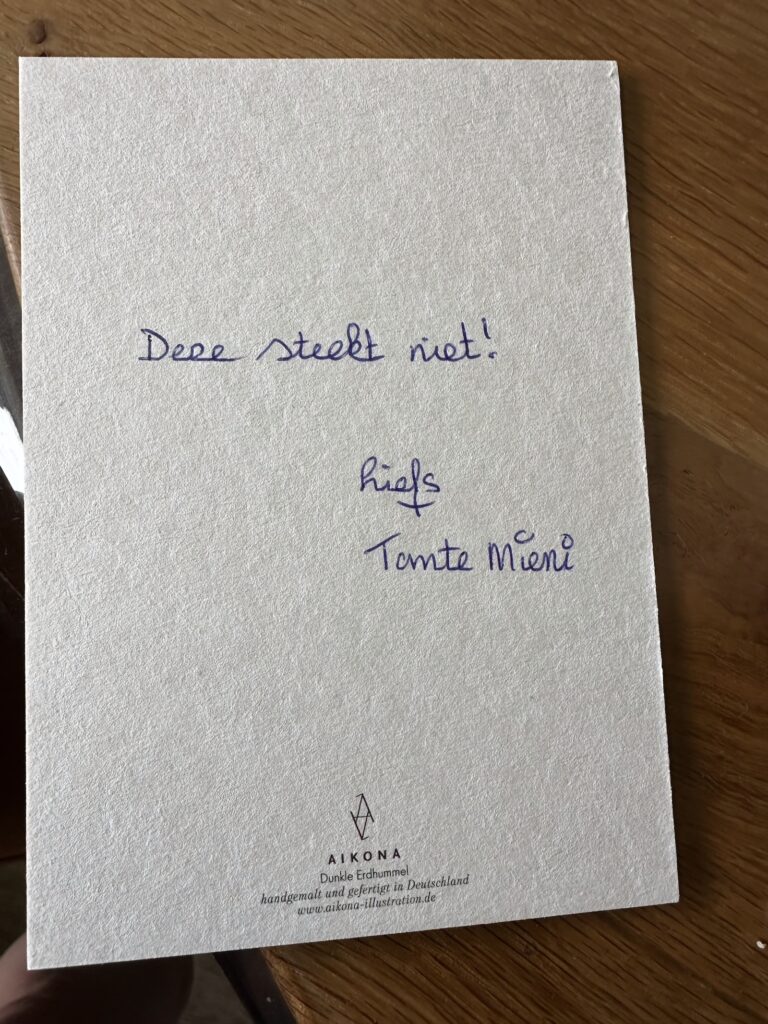 Deze steekt niet!
liefs
Tante Mieni
AIKONA
Dunkle Erdhummel
handgemalt und gefertigt in Deutschland
www.aikona-illustration.de